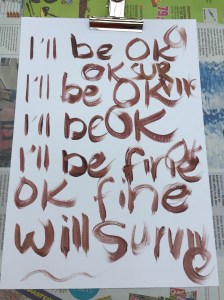 I'll be OK
OK SUR
I'll be OK
I'll be OK
I'll be fine
OK fine
will survive